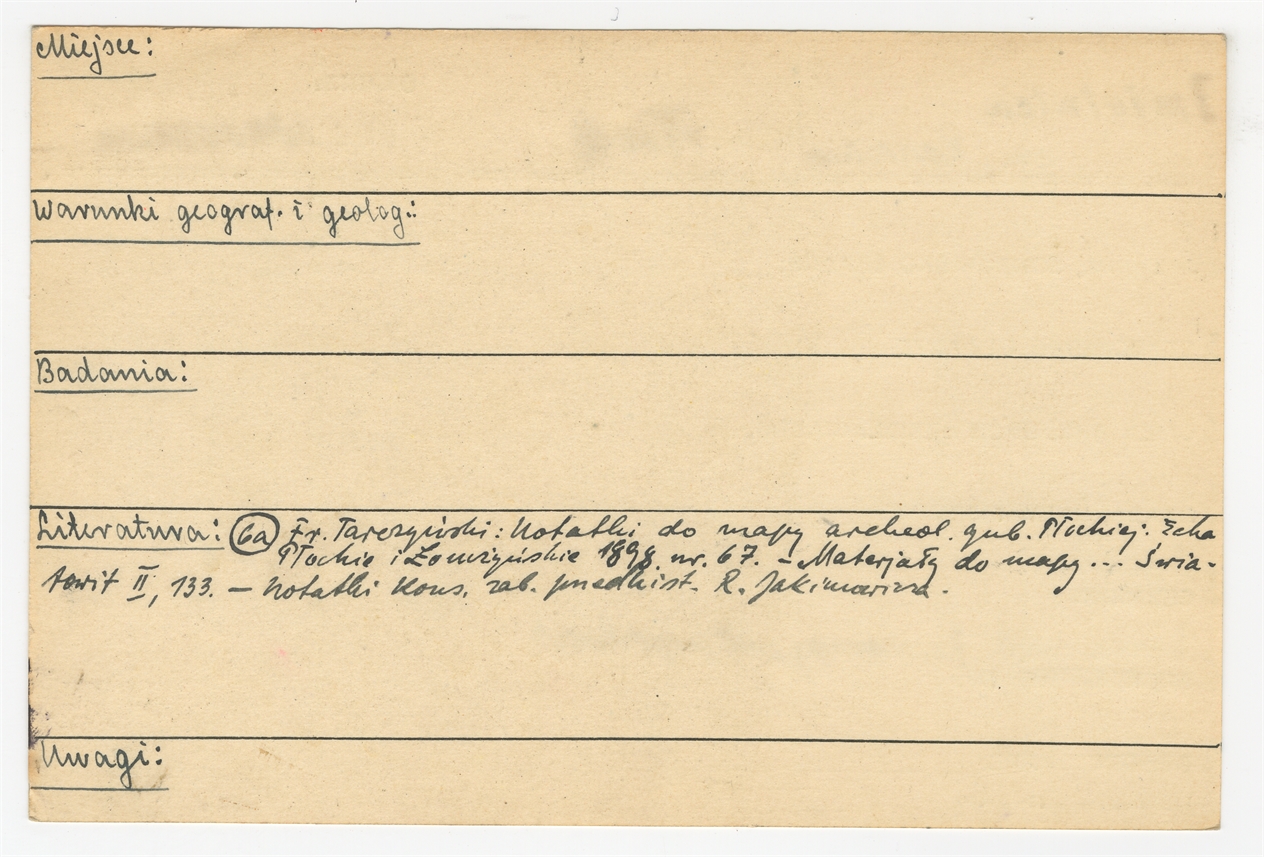 Miejsce:
Warunki geograf. i geolog.:
Badania:
Literatura: 6a Fr. Tarczyński: Notatki do mapy archeol. gub. Płockiej: Echa
Płockie i Łomżyńskie 1898. nr. 67. – Materjały do mapy ... Świa-
towit II, 133. – Notatki Kons. zab. przedhist. R. Jakimowicza.
Uwagi: